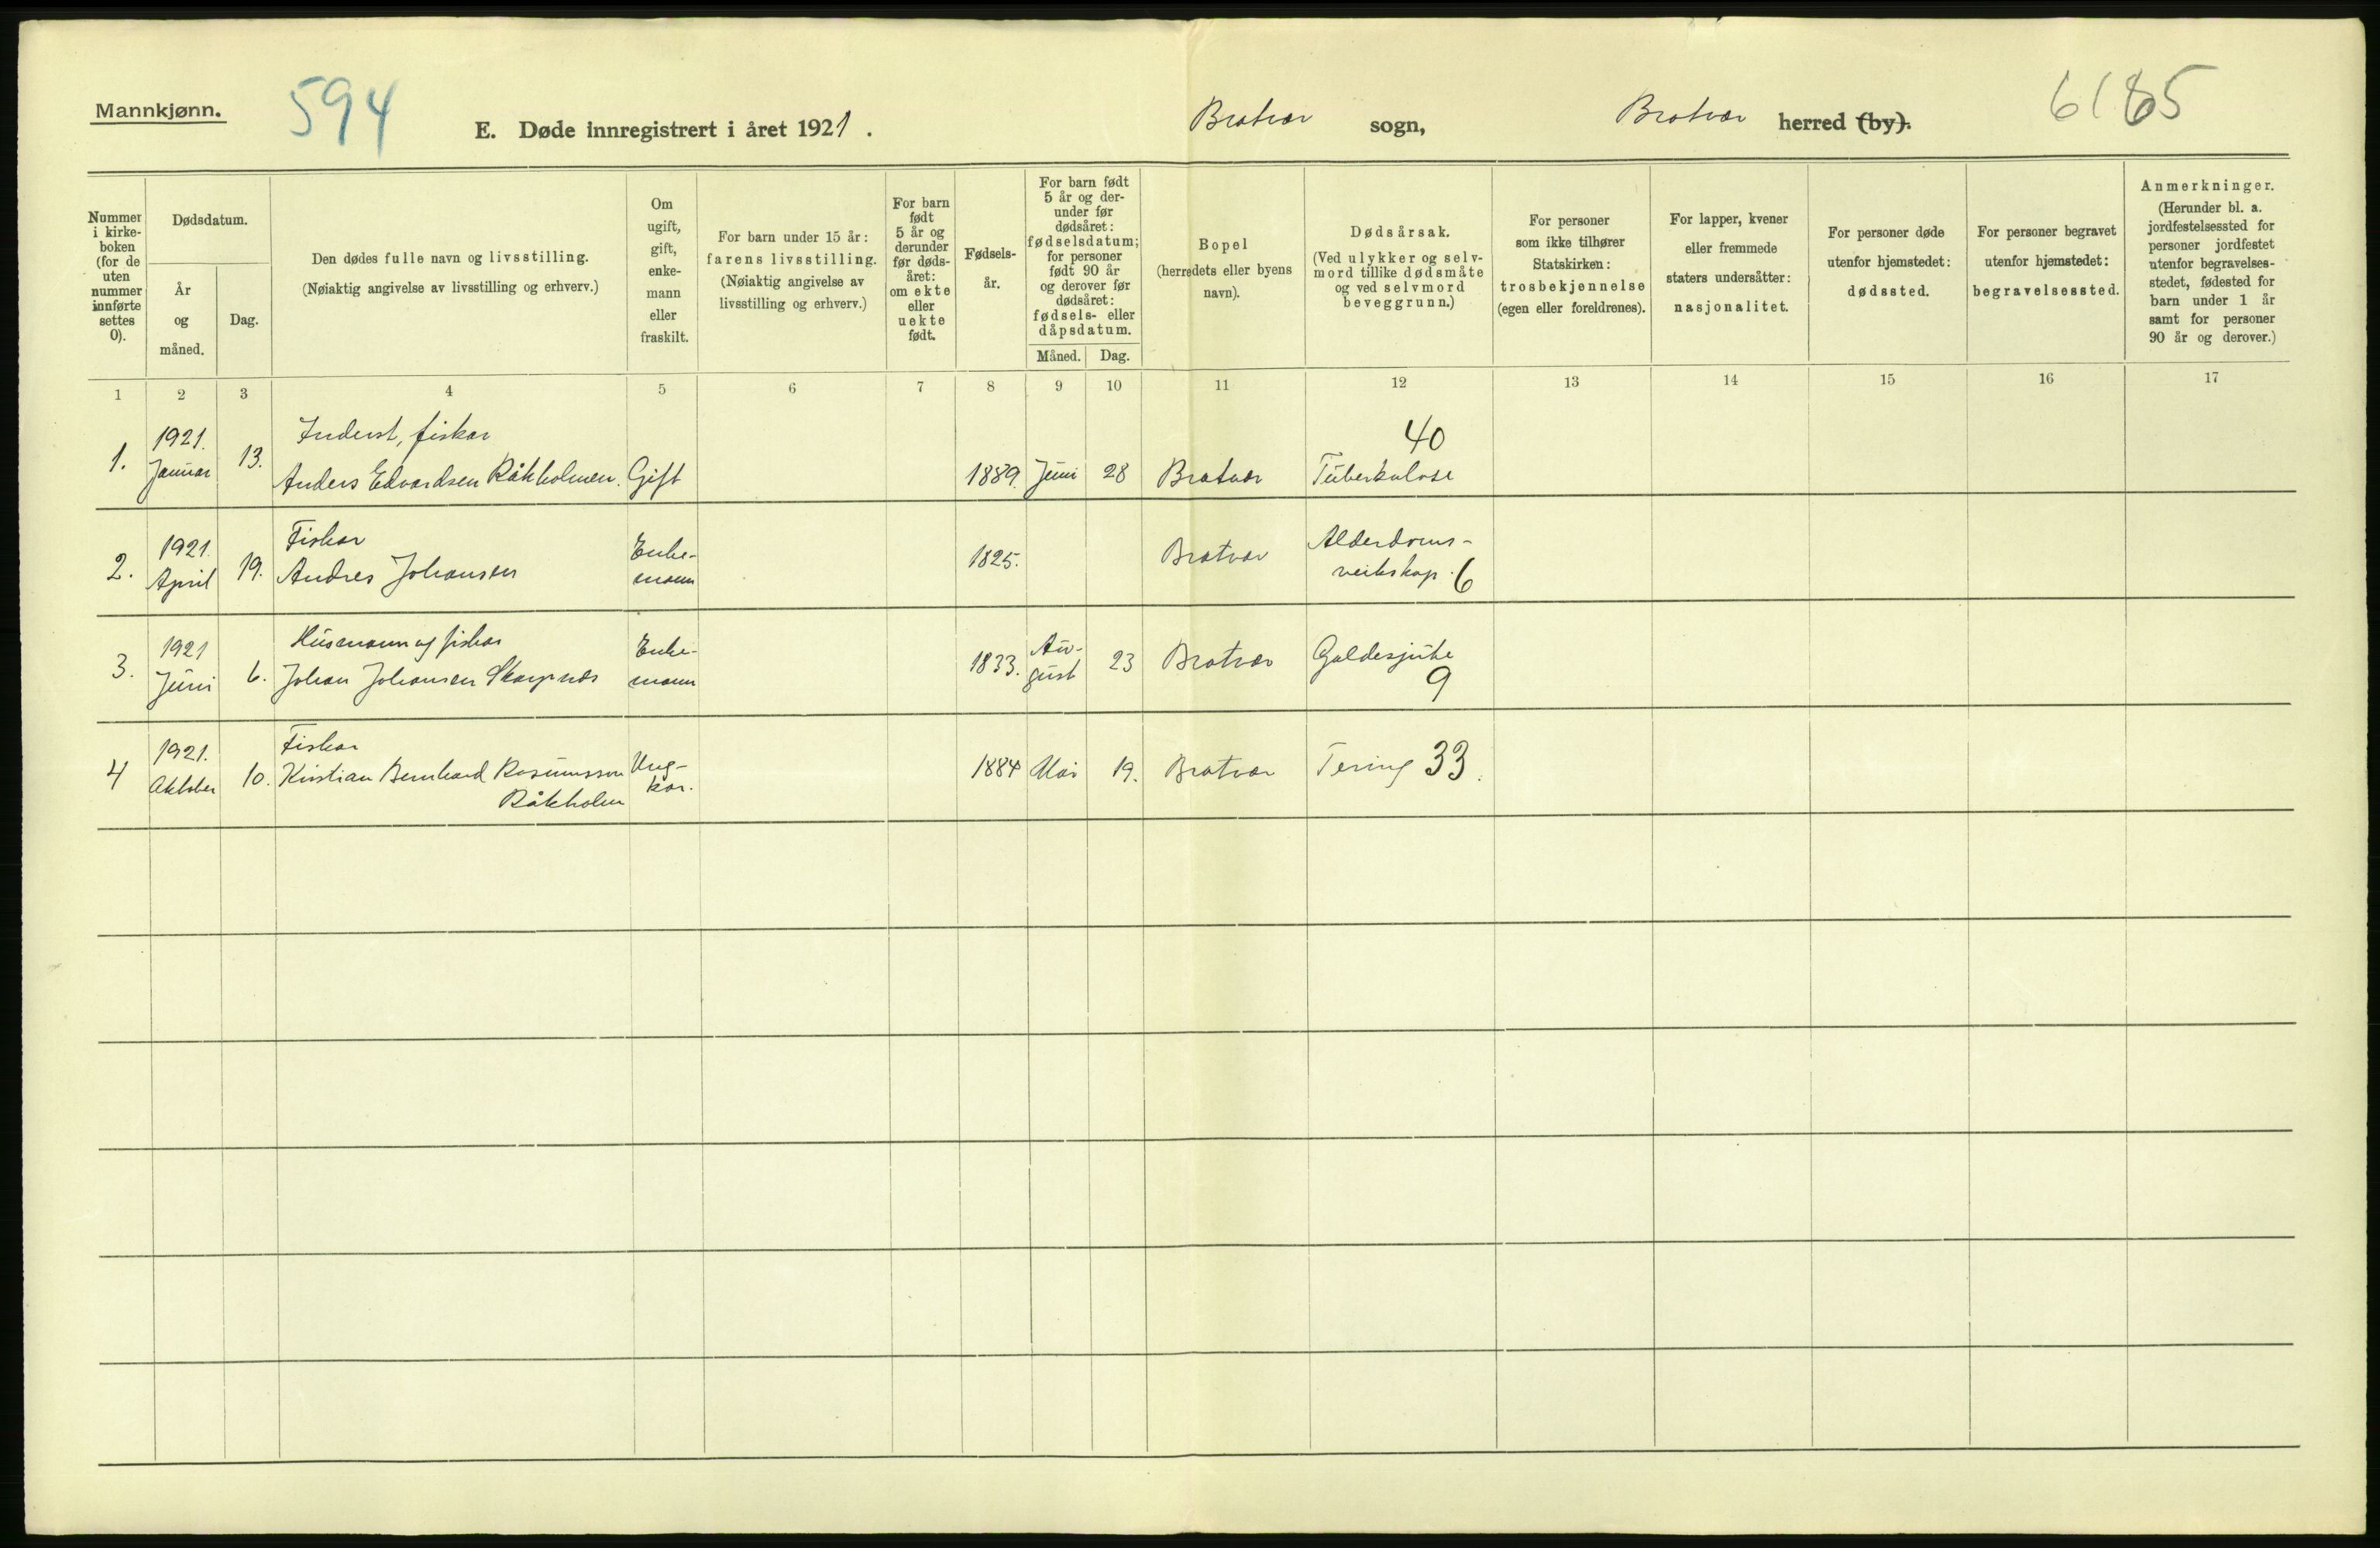 Mannkjønn.
594
E. Døde innregistrert i året 1921.
Bratvær sogn,
Bratvær herred (by).
6185
Nummer i kirkeboken (for de uten nummer innførte settes 0).
Dødsdatum.
År og måned.
Dag.
Den dødes fulle navn og livsstilling.
(Nøiaktig angivelse av livsstilling og erhverv.)
Om ugift, gift, enkemann eller fraskilt.
For barn under 15 år:
farens livsstilling.
(Nøiaktig angivelse av livsstilling og erhverv.)
For barn født 5 år og derunder før dødsåret: om ekte eller uekte født.
Fødselsår.
For barn født 5 år og derunder før dødsåret: fødselsdatum; for personer født 90 år og derover før dødsåret: fødsels- eller dåpsdatum.
Måned. Dag.
Bopel
(herredets eller byens navn).
Dødsårsak.
(Ved ulykker og selvmord tillike dødsmåte og ved selvmord beveggrunn.)
For personer som ikke tilhører Statskirken: trosbekjennelse (egen eller foreldrenes).
For lapper, kvener eller fremmede staters undersåtter: nasjonalitet.
For personer døde utenfor hjemstedet: dødssted.
For personer begravet utenfor hjemstedet: begravelsessted.
Anmerkninger.
(Herunder bl. a. jordfestelsessted for personer jordfestet utenfor begravelsesstedet, fødested for barn under 1 år samt for personer 90 år og derover.)
1 2 3 4 5 6 7 8 9 10 11 12 13 14 15 16 17
1921. Inderst, fiskar 40
1. Januar 13. Anders Edvardsen Råkholmen. Gift 1889. Juni 28 Bratvær Tuberkulose
1921. Fiskar Enke- Alderdoms-
2. April 19. Andres Johansen mann 1825. Bratvær veikskap. 6
1921 Husmann og fiskar Enke- Au-
3. Juni 6. Johan Johansen Skarpnes mann 1833. gust 23 Bratvær Galdesjuke
9
1921. Fiskar
4 Oktober 10. Kristian Bernhard Rasmussen Ung- 1884 Mai 19. Bratvær Tering 33.
Råkholm kar.